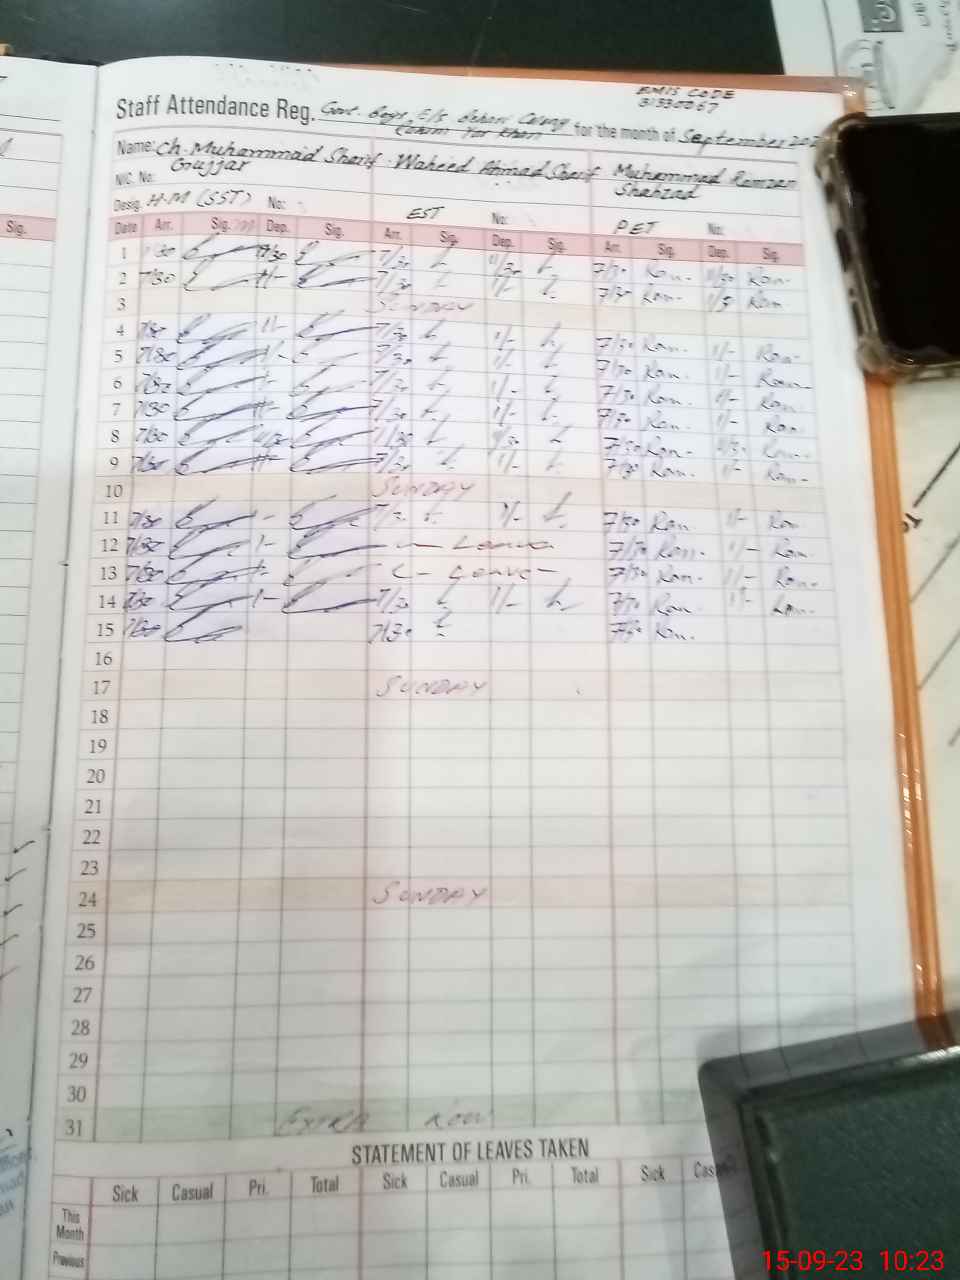 EMIS CODE
31330067
Staff Attendance Reg. Govt. Boys E/S for the month of September
Rahim Yar Khan
Name: Ch. Muhammad Sharif Waheed Ahmad Sharif Muhammad Ramzan
Gujjar Shahzad
N/C. No:
Desig. H.M (SST) No: EST No: PET No:
Date Arr. Sig. Dep. Sig. Arr. Sig. Dep. Sig. Arr. Sig. Dep. Sig.
1 7/30 7/30 11/30 7/30 Ram. 11/30 Ram.
2 7/30 7/30 1/- 7/30 Ram. Ram
3 SUNDAY
4 7/30 1/- 7/30 1/- 7/30 Ram. 1/- Ram.
5 7/30 1/- 7/30 1/- 7/30 Ram. 1/- Ram.
6 7/30 1/- 7/30 1/- 7/30 Ram. 1/- Ram.
7 7/30 1/- 7/30 1/- 7/30 Ram. 1/- Ram.
8 7/30 7/30 7/30 Ram. Ram.
9 7/30 7/30 1/- 7/30 Ram. 1/- Ram.
10 SUNDAY
11 7/30 1/- 1/- 7/30 Ram 1/- Ram
12 7/30 1/- Leave 7/30 Ram. 1/- Ram.
13 7/30 1/- Leave 7/30 Ram. 1/- Ram.
14 7/30 1/- 7/30 1/- 7/30 Ram. 1/- Ram.
15 7/30 7/30 7/30 Ram.
16
17 SUNDAY
18
19
20
21
22
23
24 SUNDAY
25
26
27
28
29
30
31 EXTRA ROW
STATEMENT OF LEAVES TAKEN
Sick Casual Pri. Total Sick Casual Pri. Total Sick
This
Month
Previous
Sig.
15-09-23 10:23